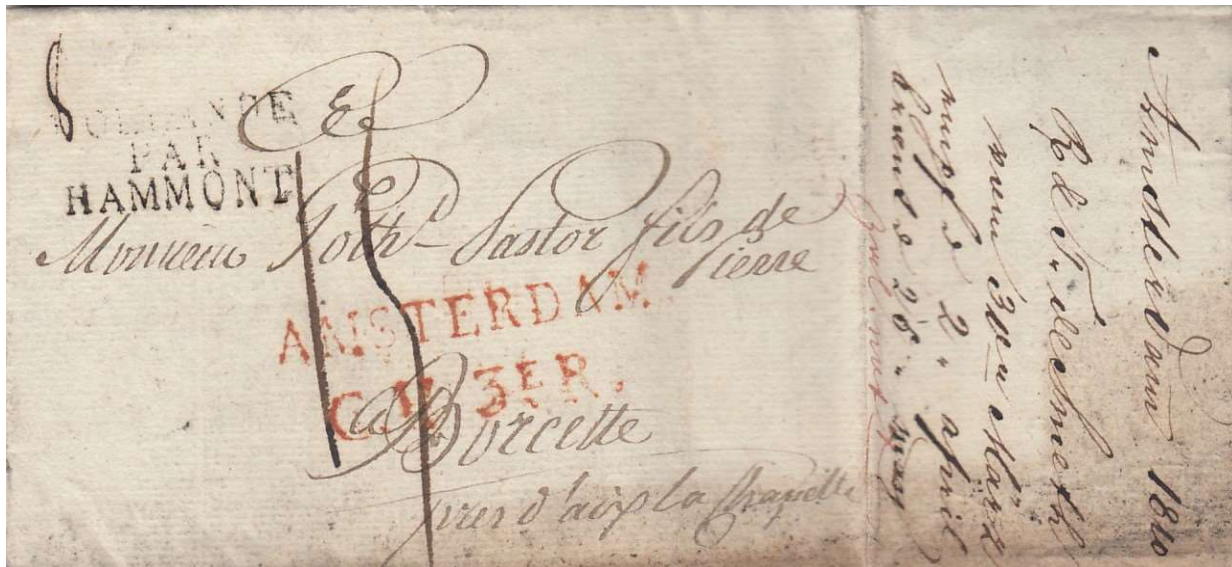 8
HOLLANDE
PAR
HAMMONT
Monsieur Goth.d Pastor fils de
Pierre
AMSTERDAM
C.H. 3E R.
a Borcette
pres d'aix la Chapelle
Amsterdam 1810
R & T. de Smeth
van 30n Marz
2n april
28n